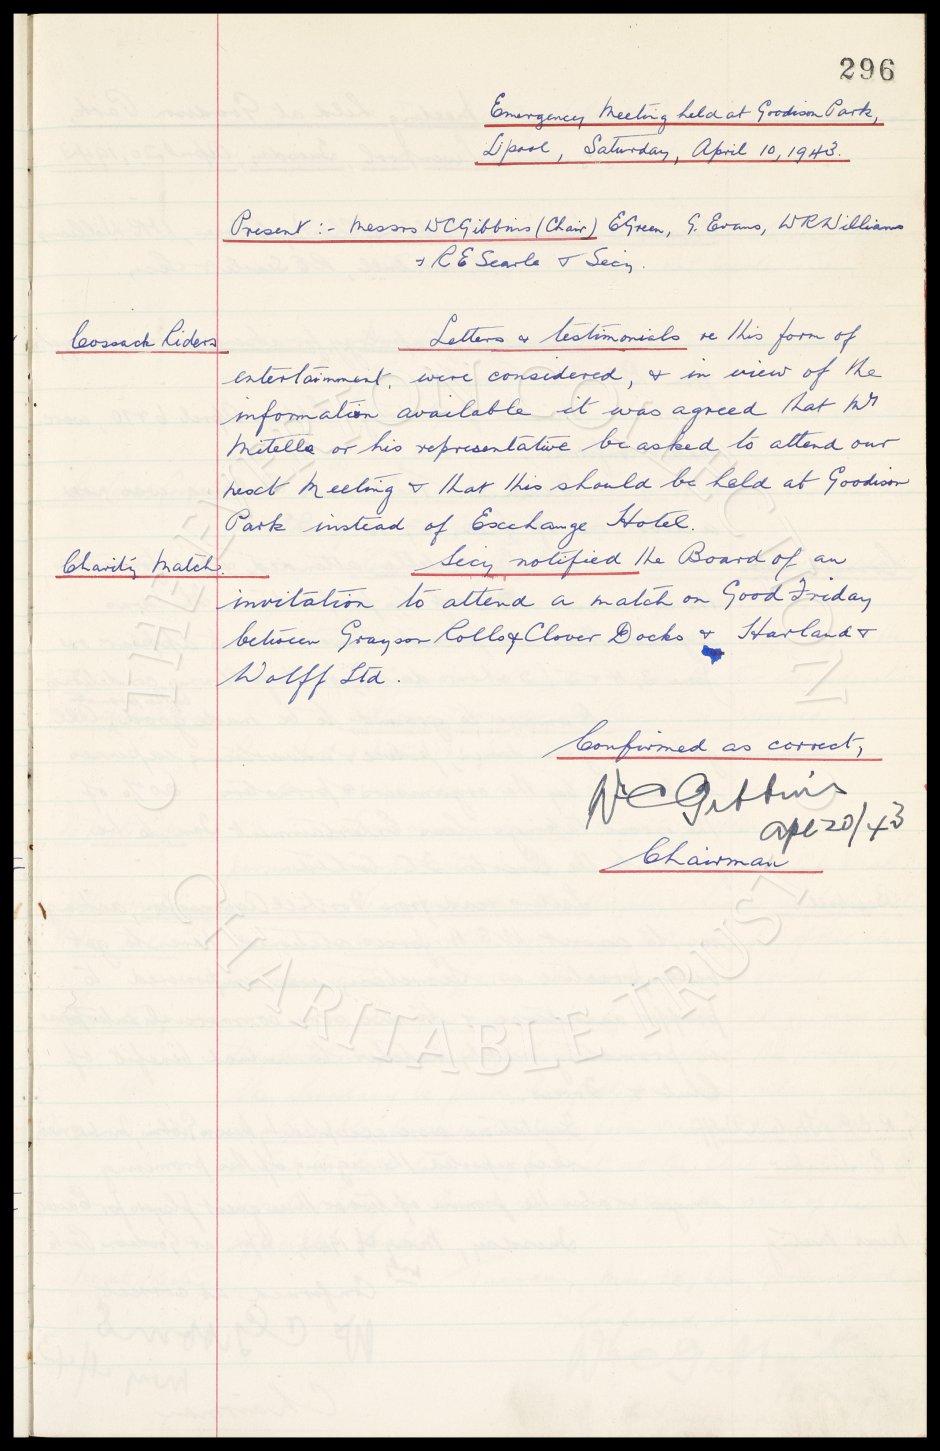 296
Emergency Meeting held at Goodison Park,
L'pool, Saturday, April 10, 1943.
Present :- Messrs W C Gibbins (Chair) E Green, G. Evans, W R Williams
& R E Searle & Secy.
Cossack Riders Letters & testimonials re this form of
entertainment, were considered, & in view of the
information available it was agreed that Mr
Mitelle or his representative be asked to attend our
next Meeting & that this should be held at Goodison
Park instead of Exchange Hotel.
Charity Match. Secy notified the Board of an
invitation to attend a match on Good Friday
between Grayson Rollo & Clover Docks & Harland &
Wolff Ltd.
Confirmed as correct,
W C Gibbins
Apl 20/43
Chairman
THE EVERTON COLLECTION
CHARITABLE TRUST